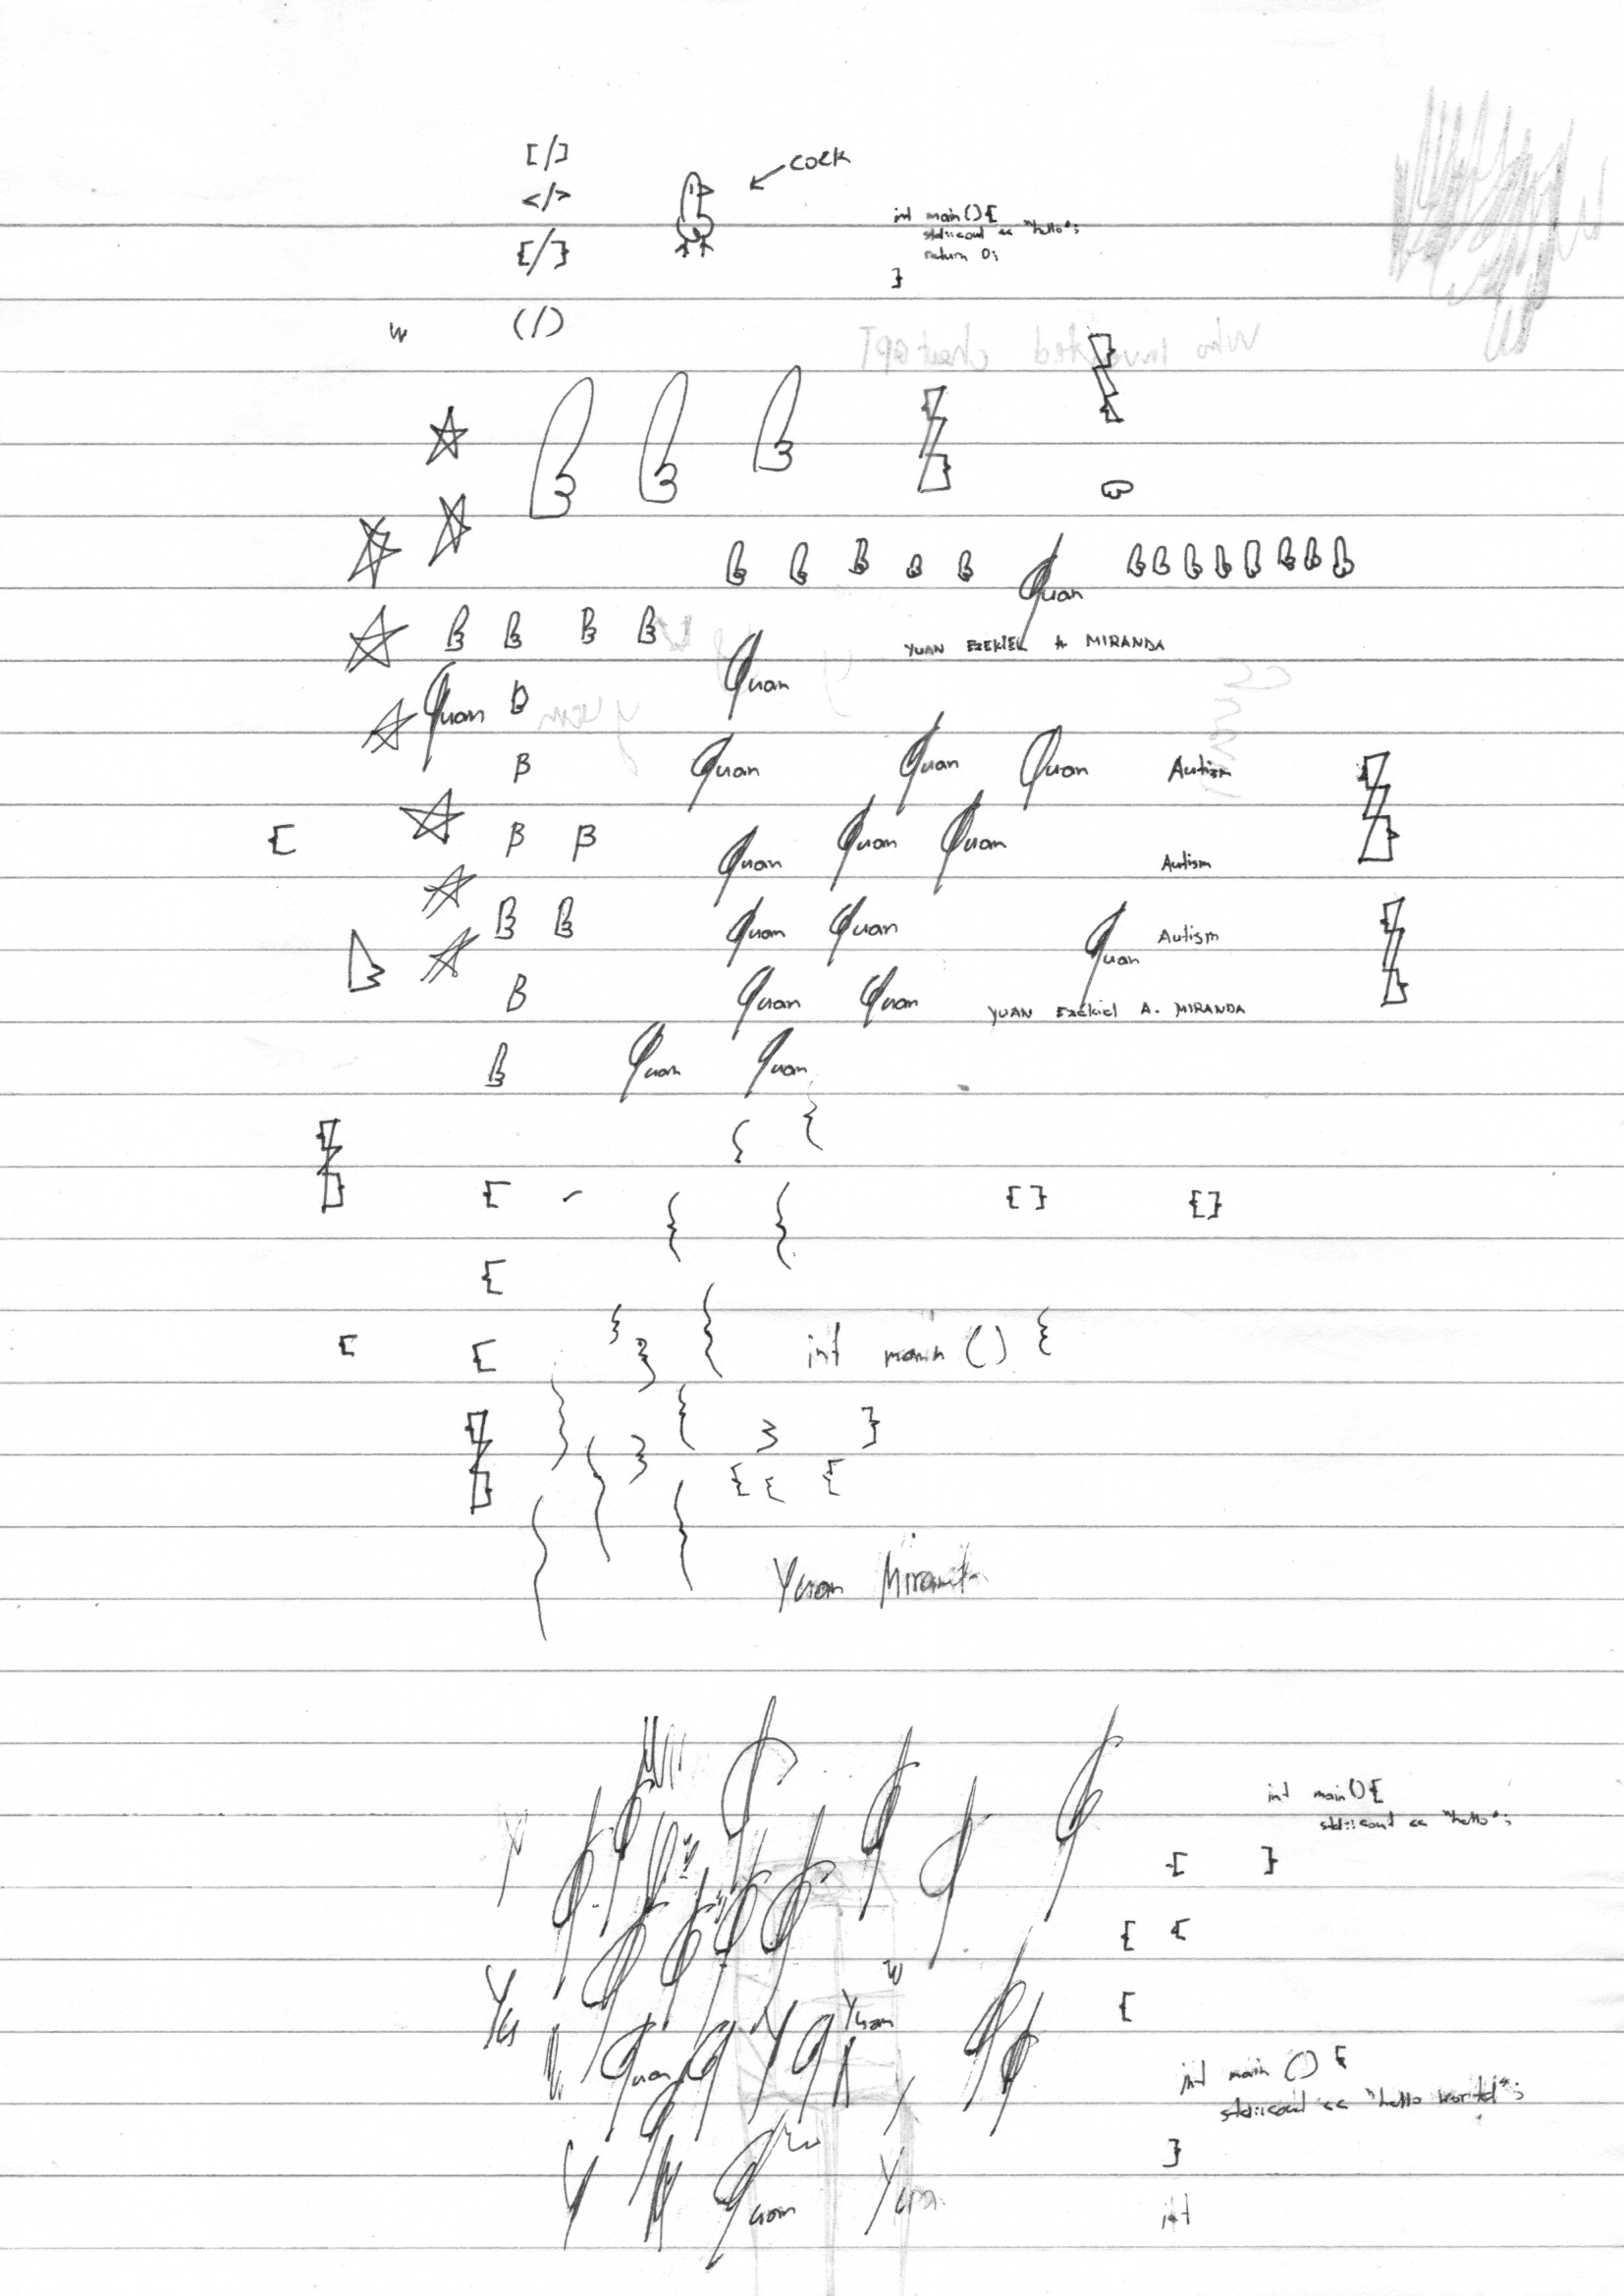 [/]
</>
{/}
(/)
cock
int main(){
std::cout << "hello";
return 0;
}
w
Who invented chatGPT
B B B
B B B B B Yuan B B B B B B B B
B B B B
YUAN EZEKIEL A MIRANDA
Yuan B Yuan
yuan
B Yuan Yuan Yuan Autism
{ B B Yuan Yuan Yuan Autism
B B Yuan Yuan Yuan Autism
B Yuan Yuan
YUAN Ezekiel A. MIRANDA
B Yuan Yuan
{ {
{ { { {} {}
{
{ { } } { int main () {
} { } } }
{ { {
Yuan Miranda
int main(){
std::cout << "hello";
{ }
{ {
Yu Yuan w {
Yuan
int main () {
std::cout << "hello world";
}
Y Yuan Yuan
int